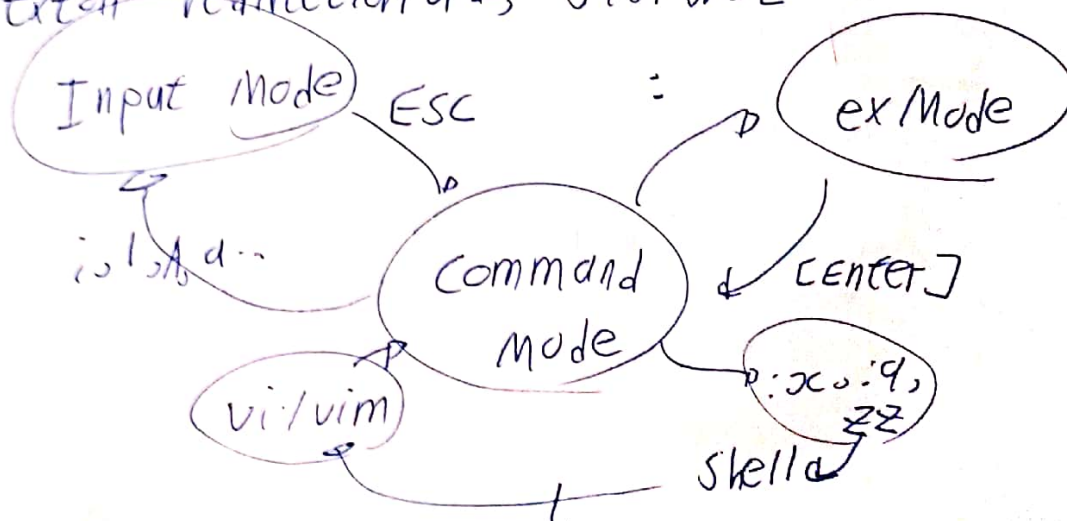 Input Mode
ESC
:
ex Mode
i, I, A, a..
Command
Mode
[Enter]
vi/vim
:x, :q,
ZZ
Shell